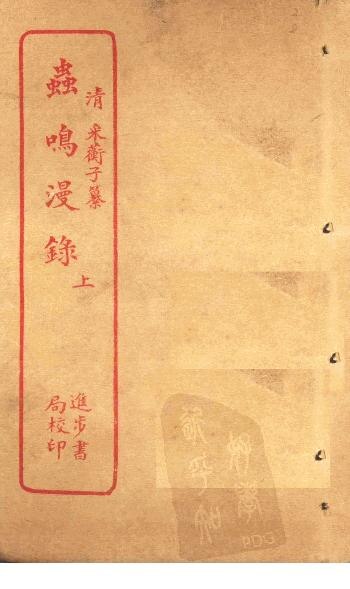 清 采蘅子纂
蟲鳴漫錄
上
進步書
局校印
PDG